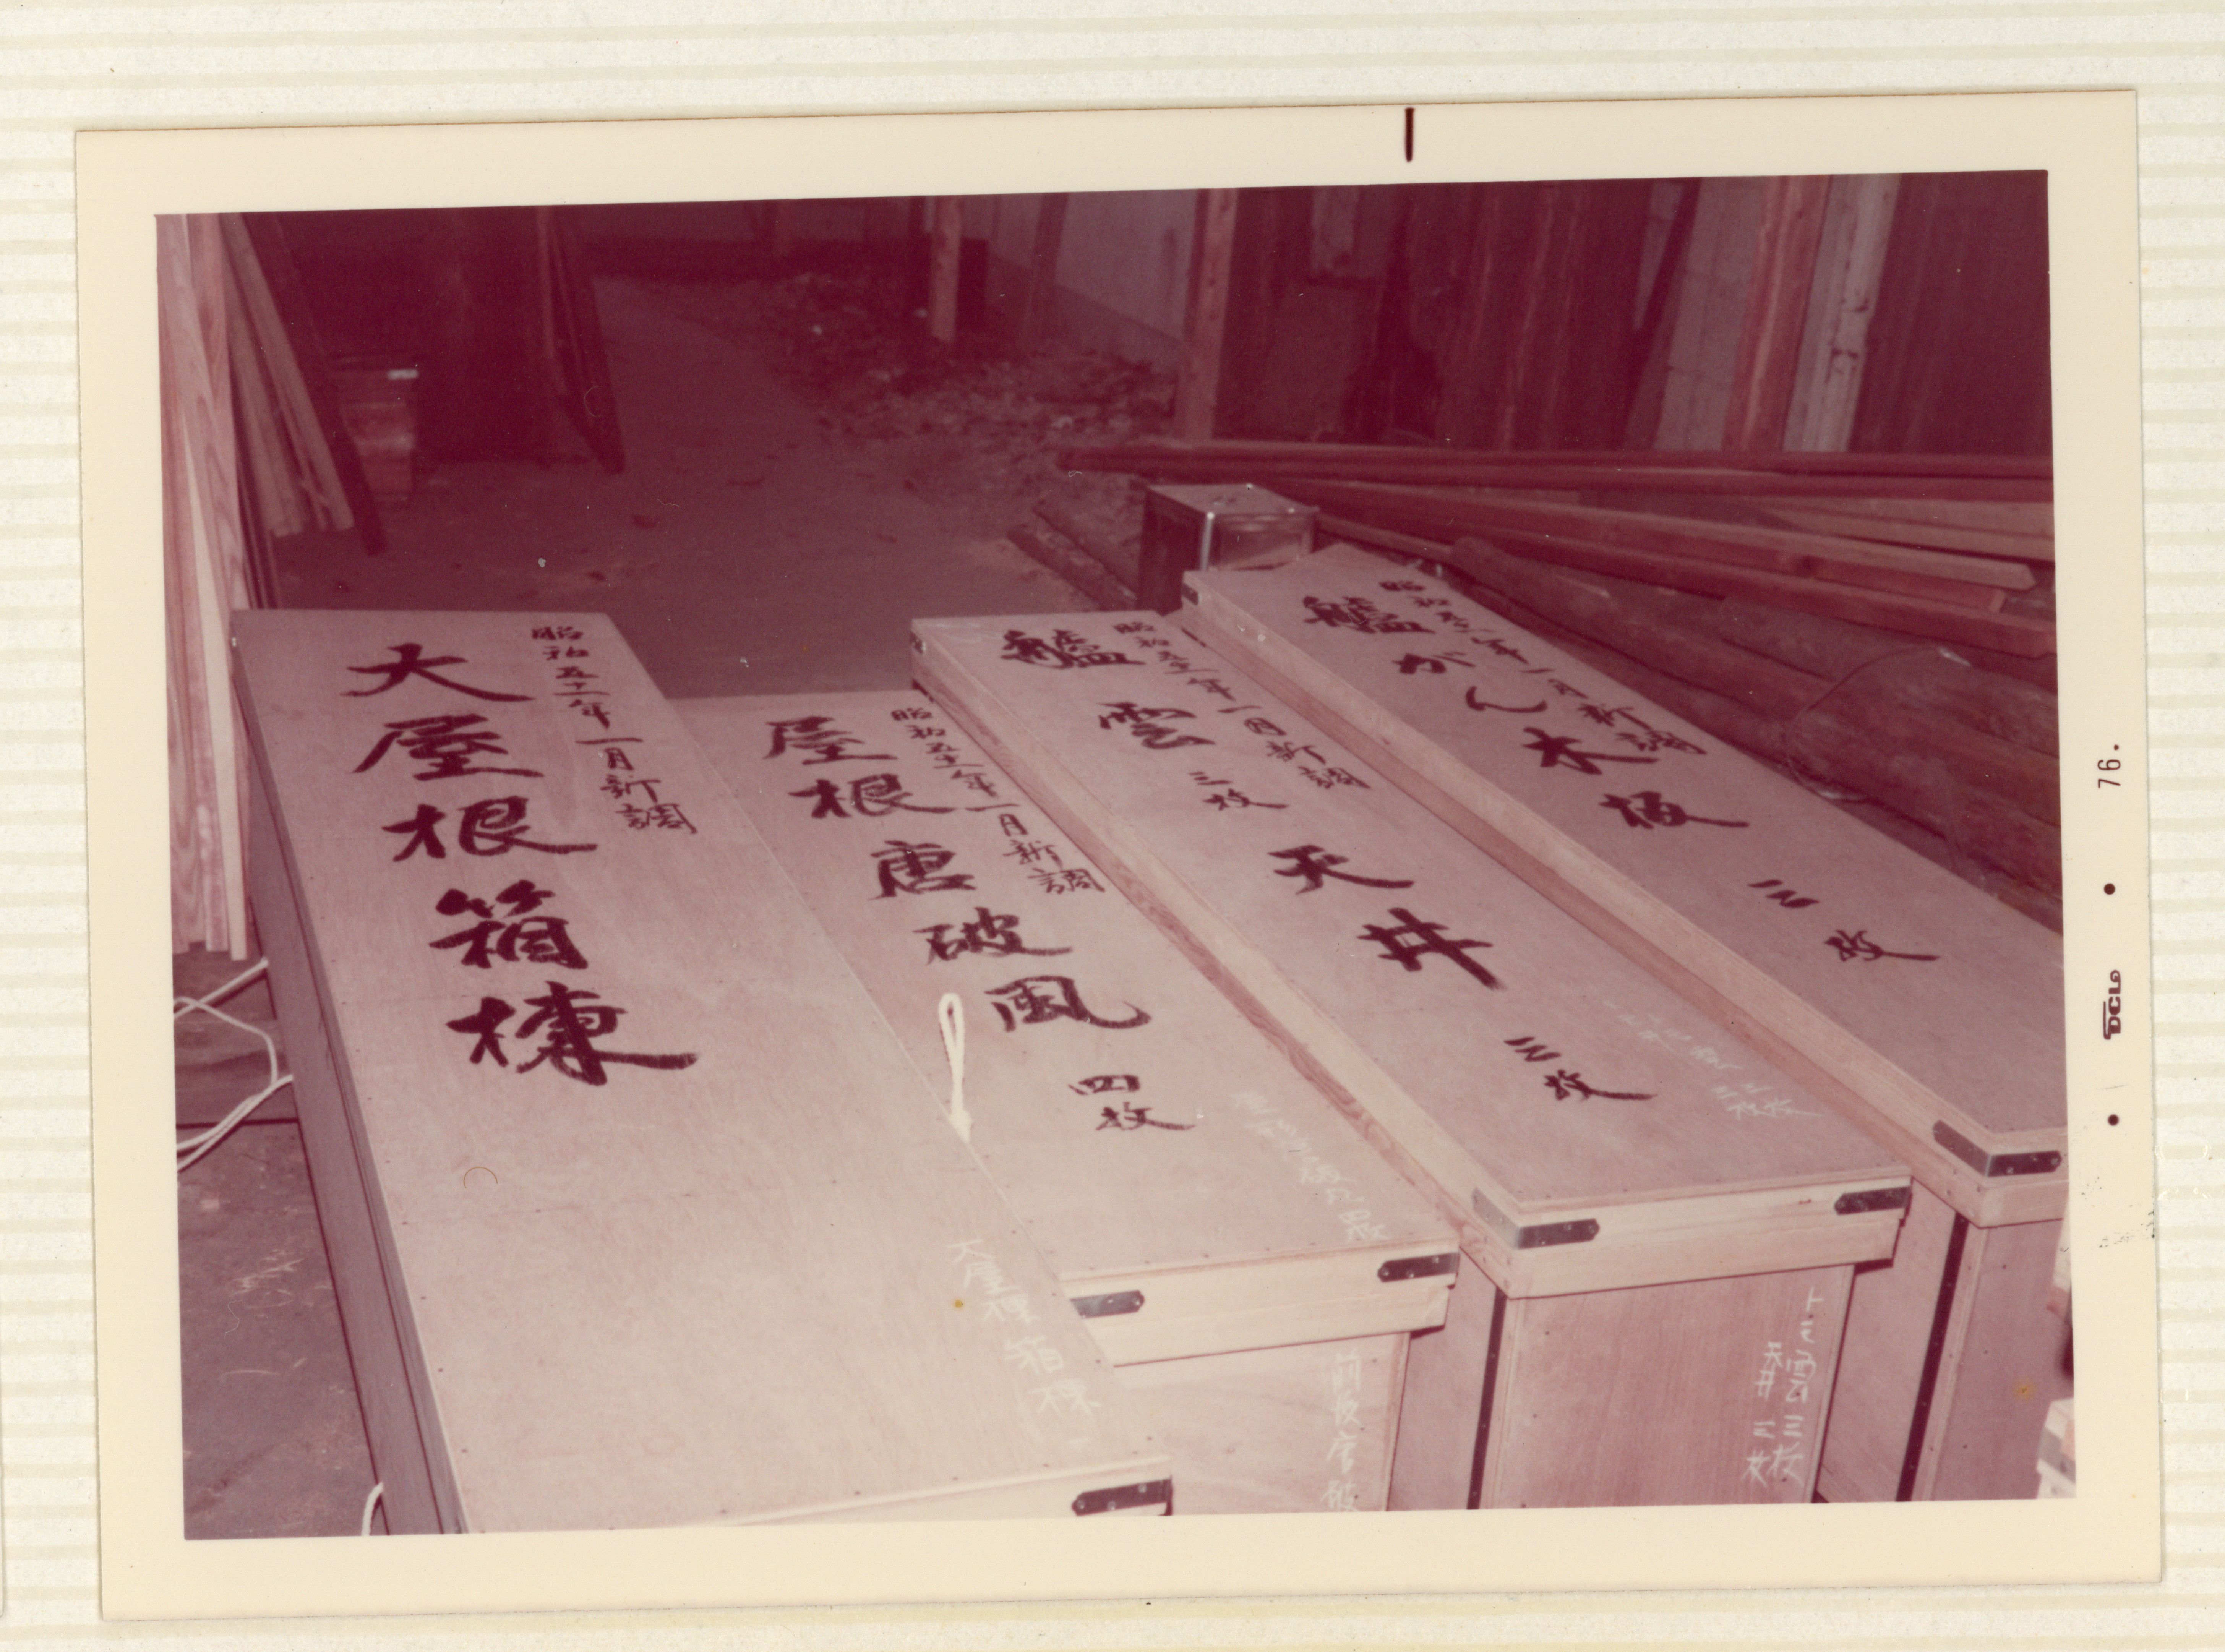 大屋根箱棟
昭和五十一年一月新調
大屋根箱棟
屋根唐破風 四枚
昭和五十一年一月新調
前後唐破
艫雲 三枚 天井 三枚
昭和五十一年一月新調
トモ雲 三枚
天井 三枚
艫がん木板 三枚
昭和五十一年一月新調
76.